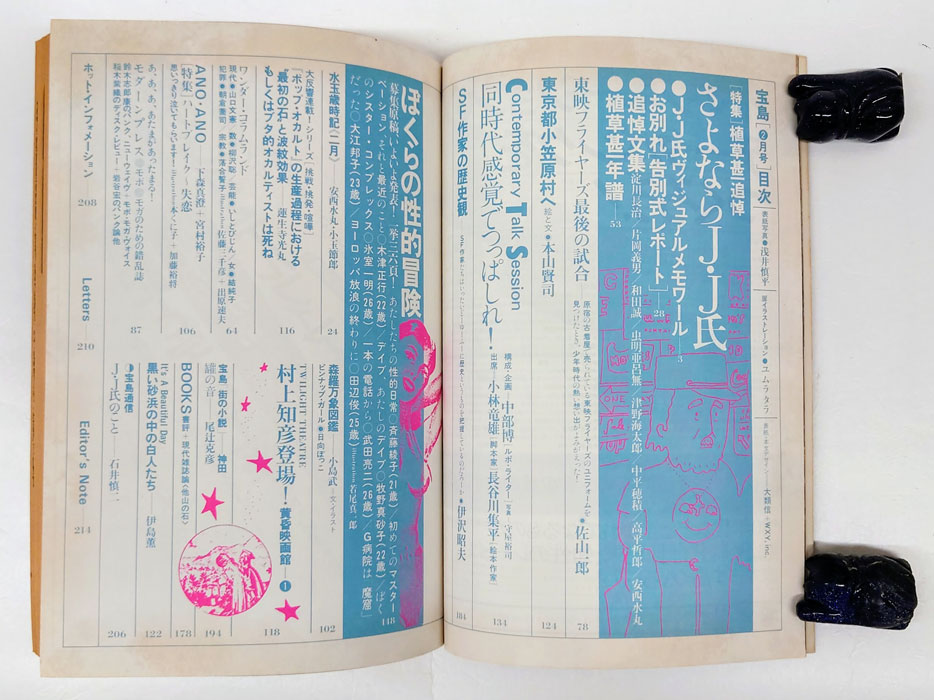 宝島❷月号目次
表紙写真●浅井慎平
扉イラストレーション●ユムラ・タラ
大類信+WXY, inc.
[特集]植草甚一追悼
さよならJ・J氏
●J・J氏ヴィジュアルメモワール 3
●お別れ[告別式レポート] 28
●追悼文集 淀川長治/片岡義男/和田誠/虫明亜呂無/津野海太郎/中平穂積/高平哲郎/安西水丸
●植草甚一年譜 53
東映フライヤーズ最後の試合
●佐山一郎 78
東京都小笠原村へ 絵と文●本山賢司 124
Contemporary Talk Session
同時代感覚でつっぱしれ!
構成・企画 中部博[ルポ・ライター] 写真 守屋裕司
出席●小林竜雄[脚本家] 長谷川集平[絵本作家] 134
SF作家の歴史観
●伊沢昭夫 184
ぼくらの性的冒険
募集原稿、いよいよ発表!一挙三六頁! あたしたちの性的日常○斉藤綾子(21歳)/初めてのマスター
ベーション、それと最近のこと○木津正行(22歳)/デイブ、あたしのデイブ○牧野真砂子(22歳)/ぼく
のシスター・コンプレックス○氷室一明(26歳)/一本の電話から○武田亮二(26歳)/G病院は“魔窟”
だった○大江邦子(23歳)/ヨーロッパ放浪の終わりに○田辺俊(25歳) illustration 若尾真一郎 148
水玉歳時記[二月] 安西水丸・小玉節郎 24
大反響連載!シリーズ[挑戦・挑発・喧嘩]
「ポップ・オカルト」の生産過程における
“最初の石”と波紋効果
もしくはブタ的オカルティストは死ね 蓮生寺光丸 116
ワンダー・コラムランド
現代●山口文憲 数●細沢聡 芸能●いしとびじん/女●結純子
犯罪●朝倉喬司 宗教●落合誓子 illustration 佐藤千彦+出原速夫 64
ANO・ANO 下森真澄+宮村裕子
[特集]ハートブレイク―失恋
思いっきり泣いてもらいます! illustration 本くに子+加藤裕将 106
あ、あ、あ、あたまがあったまる!
モダーンプレス●モボ・モガのための錯乱誌
鈴木志郎康のパンク、ニューウェイヴ・モボ・モガ・ヴォイス
桜木紫織のディスク・レビュー+岩谷宏のパンク論他 87
ホットインフォメーション 208
森羅万象図鑑 小島武 文・イラスト
ピンナップガール●日向ぼっこ 102
TWILIGHT THEATRE
村上知彦登場! 黄昏映画館―❶ 118
宝島 街の小説 神田
鑵の音 尾辻克彦 194
BOOKS 書評+現代雑誌論〈他山の石〉 178
It's A Beautiful Day
黒い砂浜の中の白人たち 伊島薫 122
宝島通信
J・J氏のこと 石井慎二 206
Letters 210
Editor's Note 214